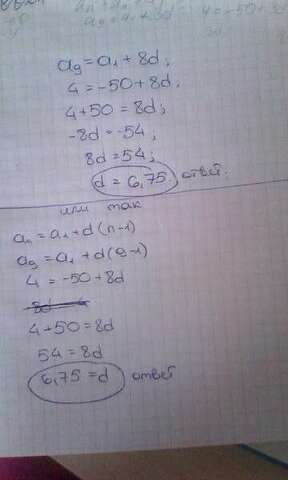 a₉ = a₁ + 8d;
4 = -50 + 8d;
4 + 50 = 8d;
-8d = -54;
8d = 54;
d = 6,75 ответ.
или так
aₙ = a₁ + d(n-1)
a₉ = a₁ + d(9-1)
4 = -50 + 8d
4 + 50 = 8d
54 = 8d
6,75 = d ответ